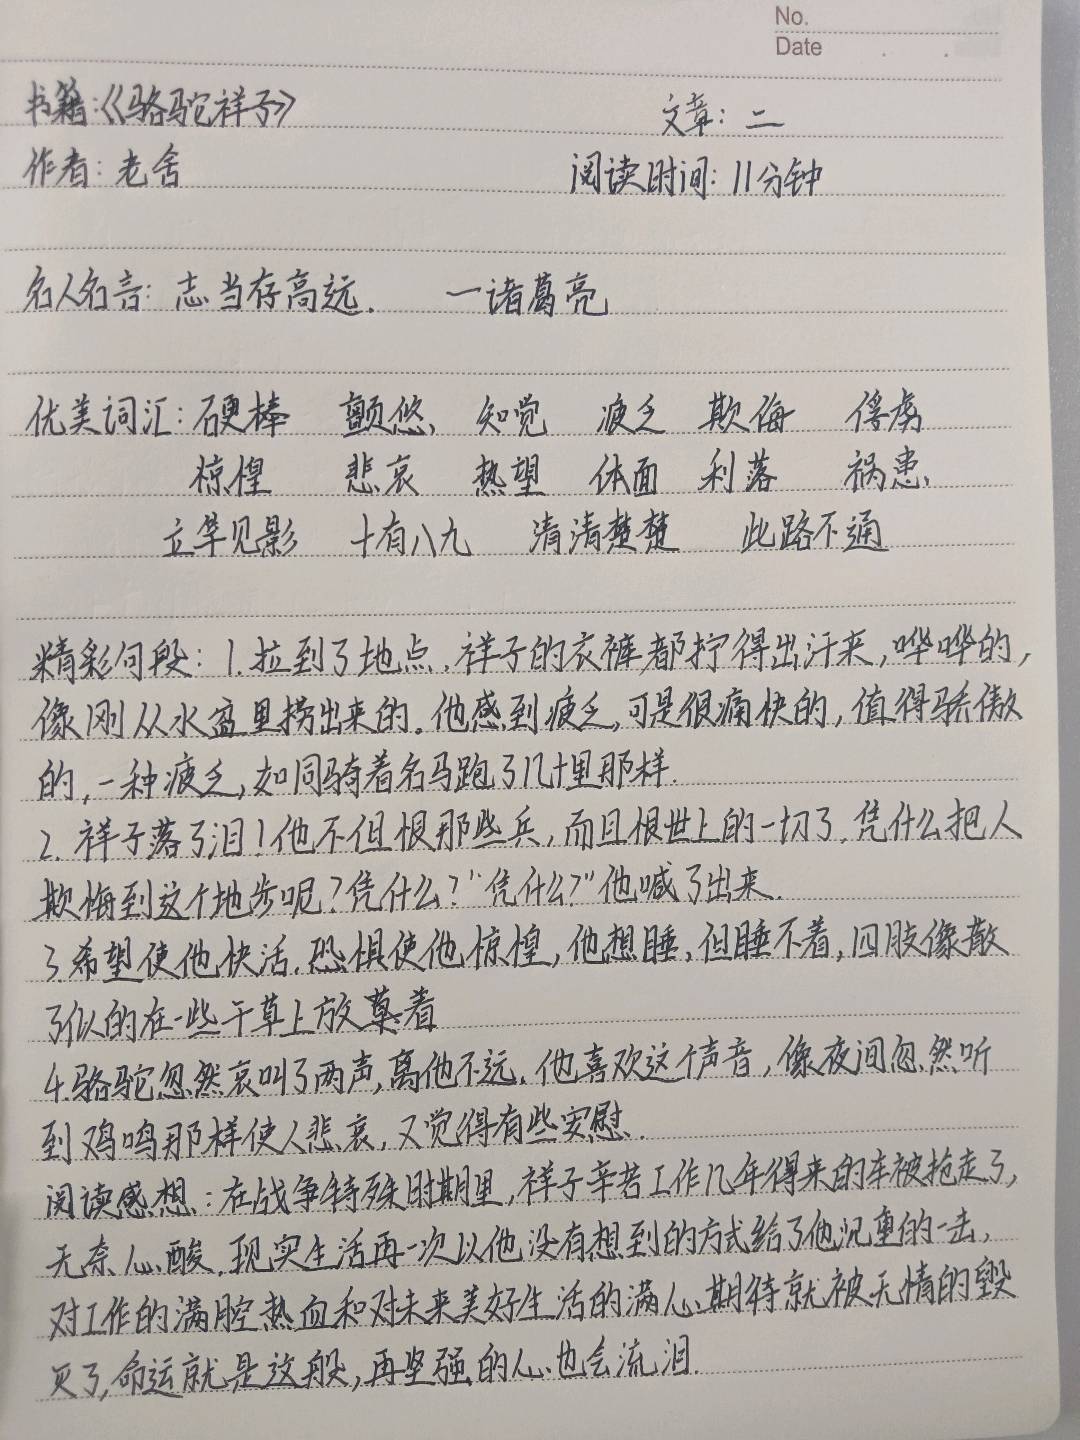 No.
Date
书籍:《骆驼祥子》 文章: 二
作者: 老舍 阅读时间: 11分钟
名人名言: 志当存高远. 一诸葛亮
优美词汇: 硬棒 颤悠、 知觉 疲乏 欺侮 俘虏
惊惶 悲哀 热望 体面 利落 祸患、
立竿见影 十有八九 清清楚楚 此路不通
精彩句段: 1.拉到了地点,祥子的衣裤都拧得出汗来,哗哗的,
像刚从水盆里捞出来的。他感到疲乏,可是很痛快的,值得骄傲
的,一种疲乏,如同骑着名马跑了几十里那样.
2. 祥子落了泪!他不但恨那些兵,而且恨世上的一切了.凭什么把人
欺侮到这个地步呢?凭什么?"凭什么?"他喊了出来.
3.希望使他快活,恐惧使他惊惶,他想睡,但睡不着,四肢像散
了似的在一些干草上放着
4.骆驼忽然哀叫了两声,离他不远.他喜欢这个声音,像夜间忽然听
到鸡鸣那样使人悲哀,又觉得有些安慰.
阅读感想:在战争特殊时期里,祥子辛苦工作几年得来的车被抢走了,
无奈心酸.现实生活再一次以他没有想到的方式给了他沉重的一击,
对工作的满腔热血和对未来美好生活的满心期待就被无情的毁
灭了,命运就是这般,再坚强的心也会流泪.